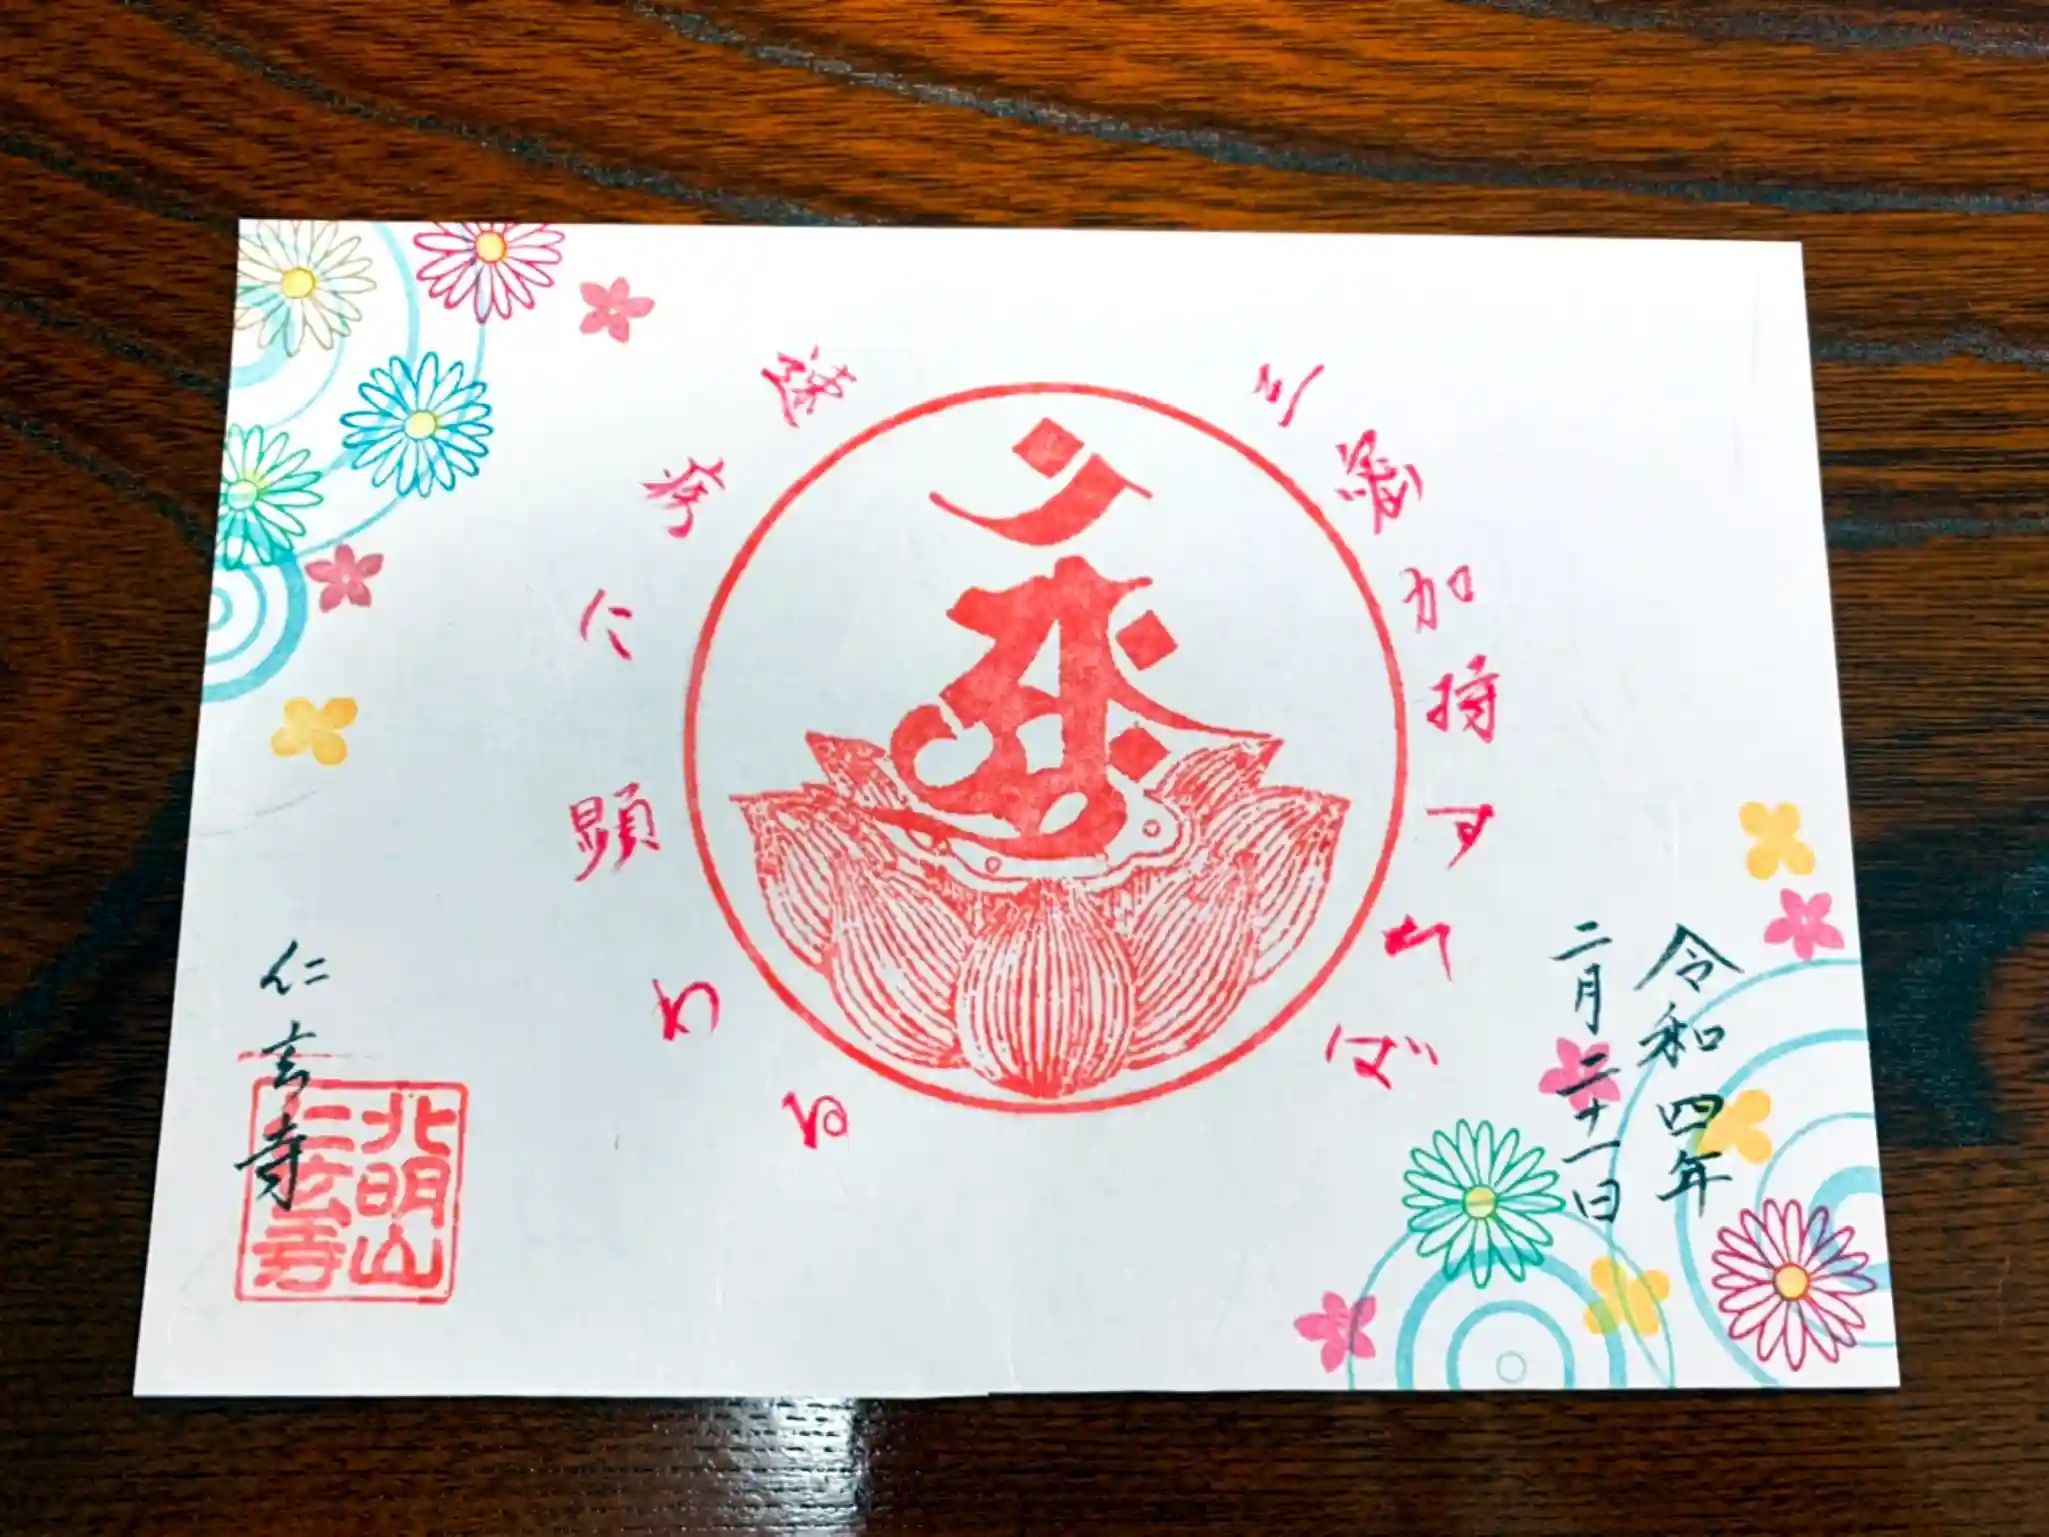 令和四年
二月二十一日
三密加持すれば
速疾に顕わる
仁玄寺
北明山
仁玄寺